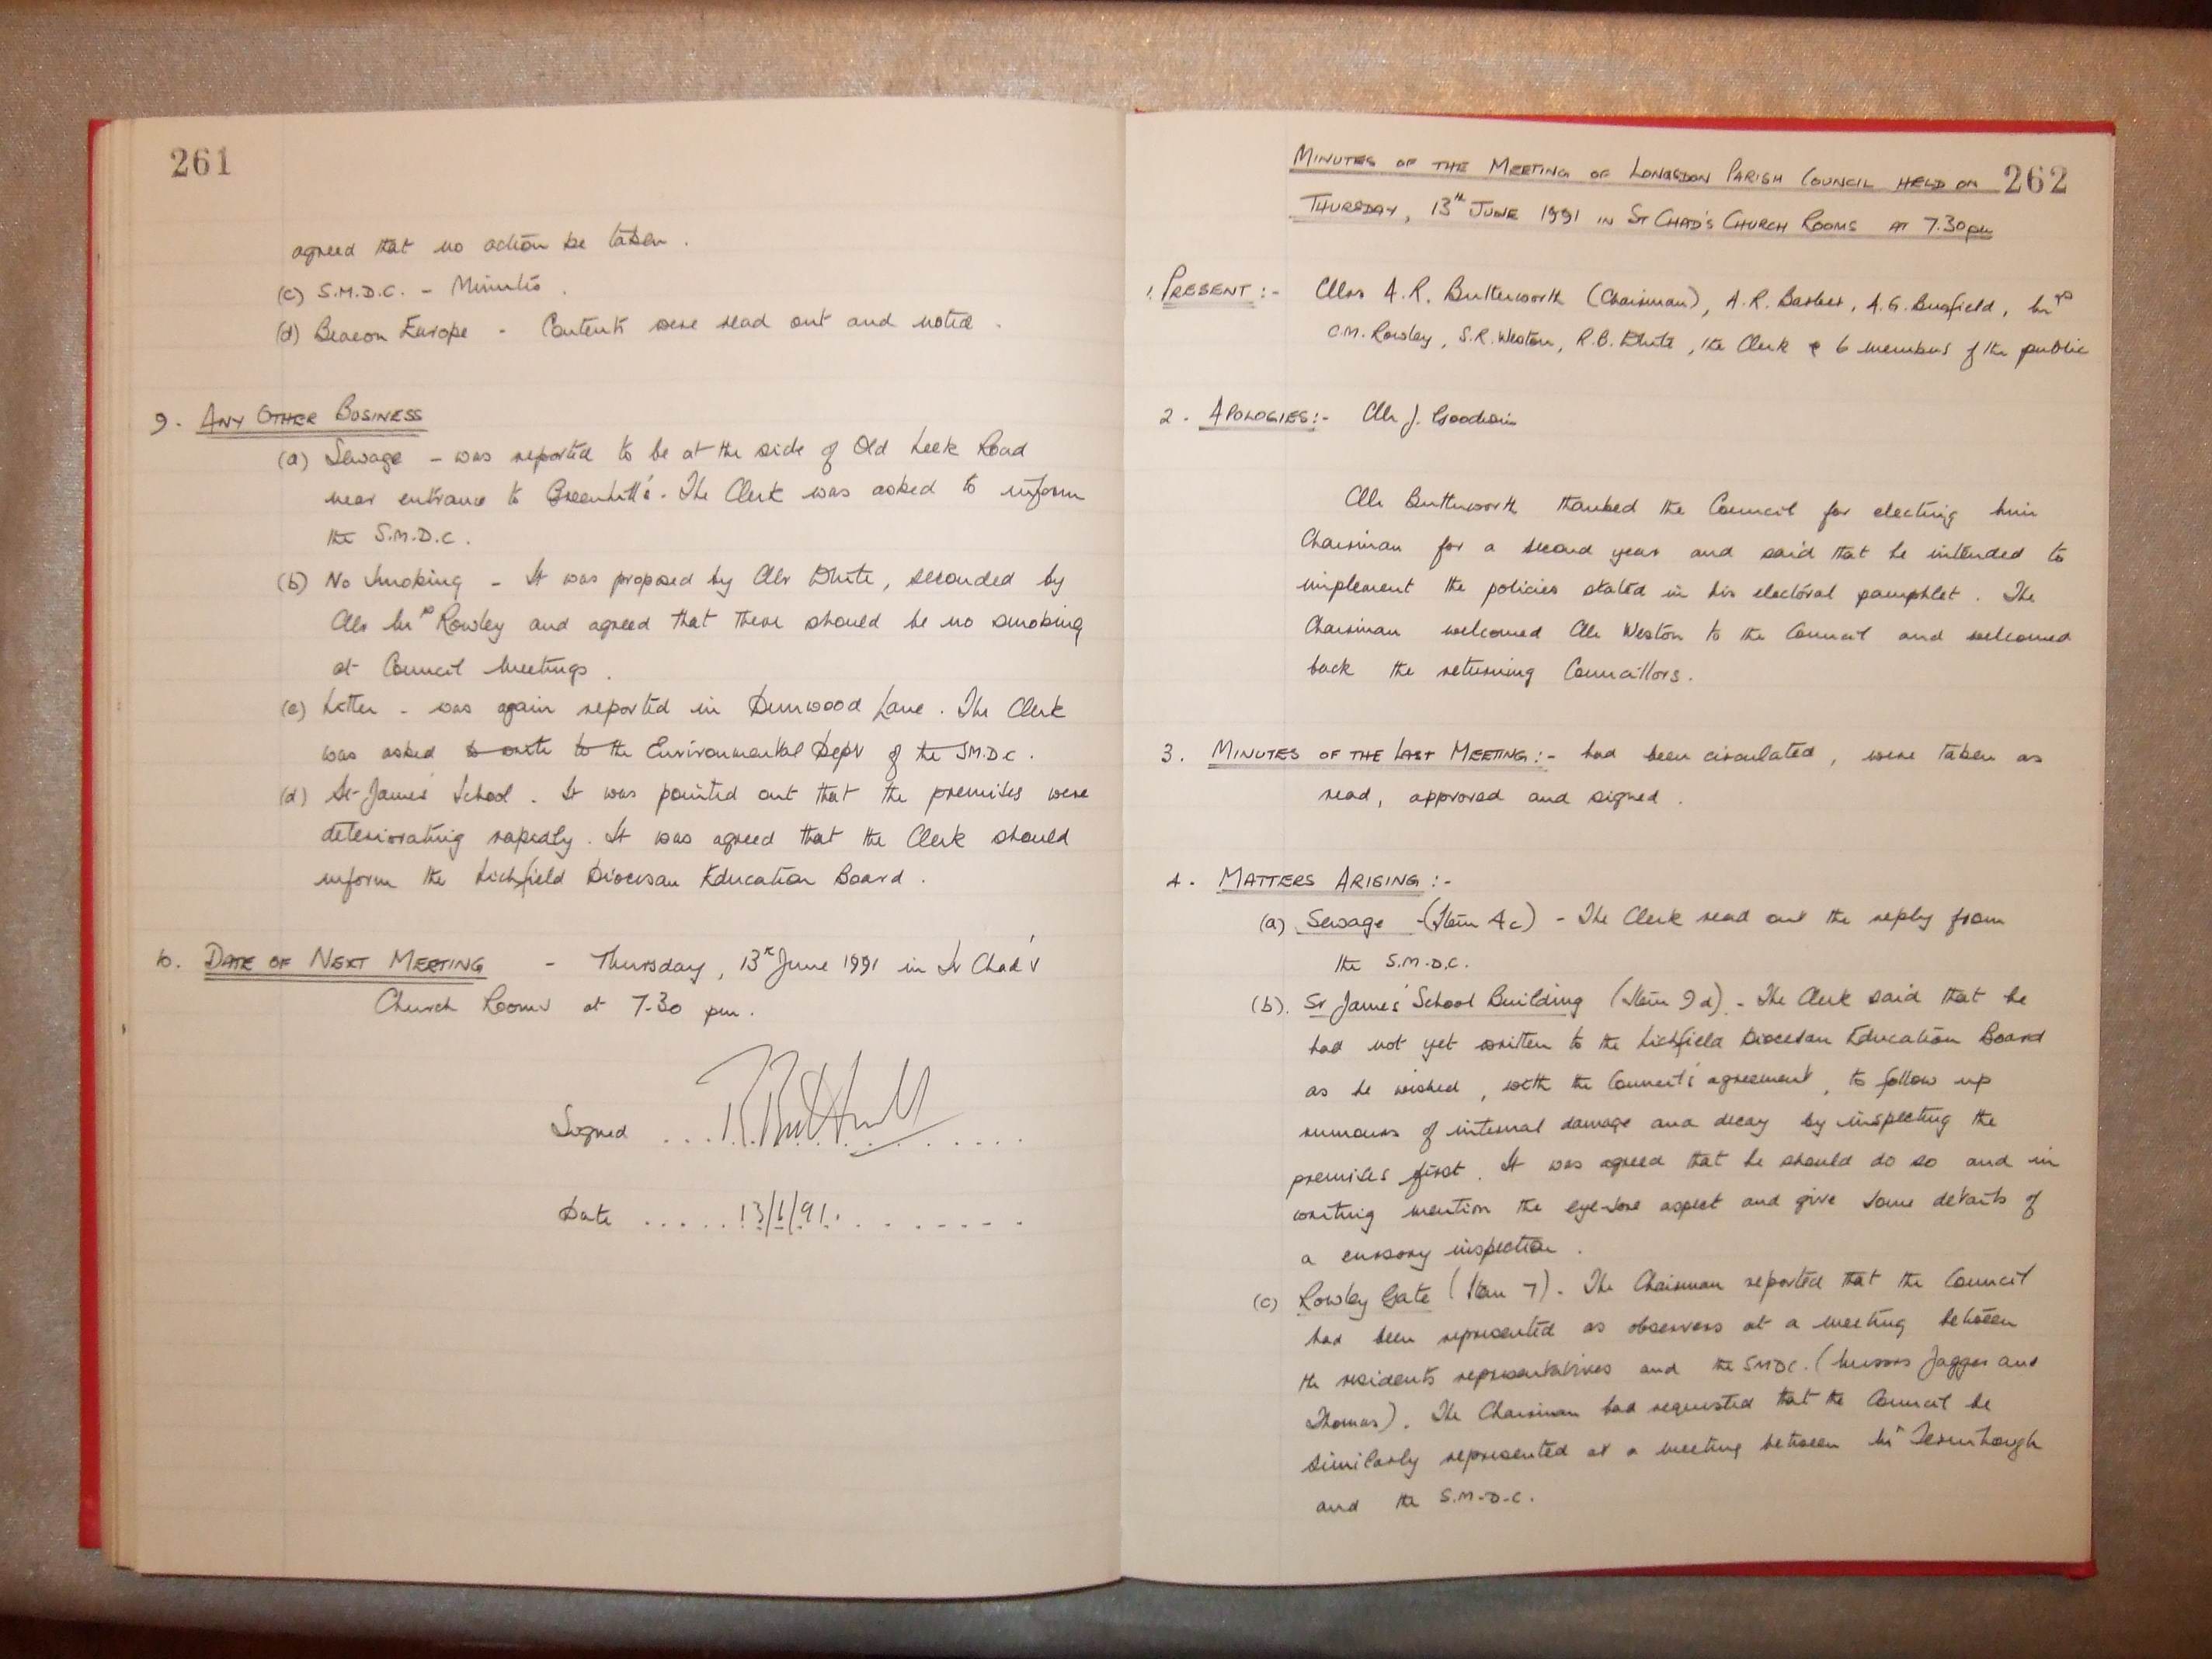 261
agreed that no action be taken .
(c) S.M.D.C. - Minutes .
(d) Beacon Europe - Contents were read out and noted .
9. ANY OTHER BUSINESS
(a) Sewage - was reported to be at the side of Old Leek Road
near entrance to . The Clerk was asked to inform
the S.M.D.C.
(b) No Smoking - It was proposed by Cllr White, seconded by
Cllr Mrs Rowley and agreed that there should be no smoking
at Council Meetings .
(c) Litter - was again reported in Dunwood Lane . The Clerk
was asked to write to the Environmental Dept of the S.M.D.C.
(d) St James' School . It was pointed out that the premises were
deteriorating rapidly . It was agreed that the Clerk should
inform the Lichfield Diocesan Education Board .
10. DATE OF NEXT MEETING - Thursday, 13th June 1991 in St Chad's
Church Rooms at 7.30 pm.
Signed
Date ..... 13/6/91
262
MINUTES OF THE MEETING OF LONGSDON PARISH COUNCIL HELD ON
THURSDAY, 13th JUNE 1991 IN ST CHAD'S CHURCH ROOMS AT 7.30pm
1. PRESENT :- Cllrs A.R. Butterworth (Chairman), A.R. Barber, A.G. Busfield, Mrs
C.M. Rowley, S.R. Weston, R.B. White, the Clerk & 6 members of the public
2. APOLOGIES:- Cllr J. Goodwin
Cllr Butterworth thanked the Council for electing him
Chairman for a second year and said that he intended to
implement the policies stated in his electoral pamphlet . The
Chairman welcomed Cllr Weston to the Council and welcomed
back the returning Councillors.
3. MINUTES OF THE LAST MEETING:- had been circulated, were taken as
read, approved and signed .
4. MATTERS ARISING :-
(a) Sewage (Item 4c) - The Clerk read out the reply from
the S.M.D.C.
(b). St James' School Building (Item 9d) - The Clerk said that he
had not yet written to the Lichfield Diocesan Education Board
as he wished, with the Council's agreement, to follow up
rumours of internal damage and decay by inspecting the
premises first. It was agreed that he should do so and in
writing mention the eye-sore aspect and give some details of
a cursory inspection .
(c) Rowley Gate (Item 7). The Chairman reported that the Council
had been represented as observers at a meeting between
the residents representatives and the SMDC. (Messrs Jagger and
Thomas). The Chairman had requested that the Council be
similarly represented at a meeting between Mr
and the S.M.D.C.